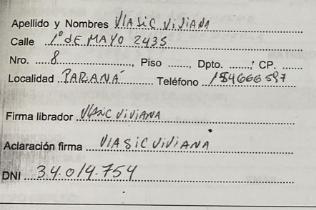 Apellido y Nombres VIASIC VIVIANA
Calle 1º DE MAYO 2435
Nro. 8 Piso Dpto. CP.
Localidad PARANÁ Teléfono 154666597
Firma librador VIASIC VIVIANA
Aclaración firma VIASIC VIVIANA
DNI 34.014.754